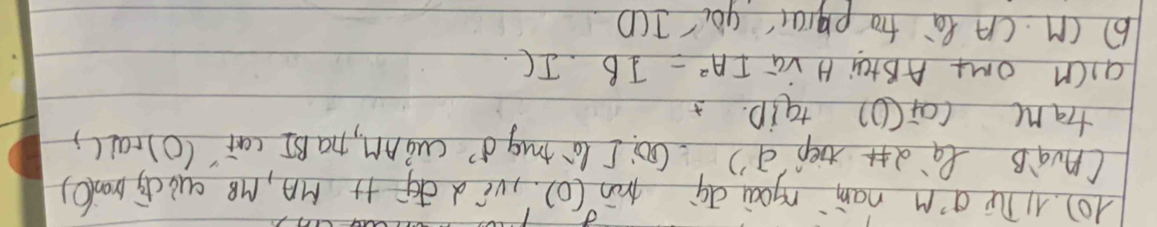 10). 1) Từ đ' M nằm ngoài đg tròn (O), vẽ 2 đg tt MA, MB của đg tròn(O)
(A và B là 2 tt tiếp đ'). Gọi I là trung đ' của AM, tia BI cắt (O) tại C,
tia MC cắt (O) tại D.
a) CM OM⊥ AB tại H và IA² = IB. IC
b) CM. CA là tia pgiác góc ICD